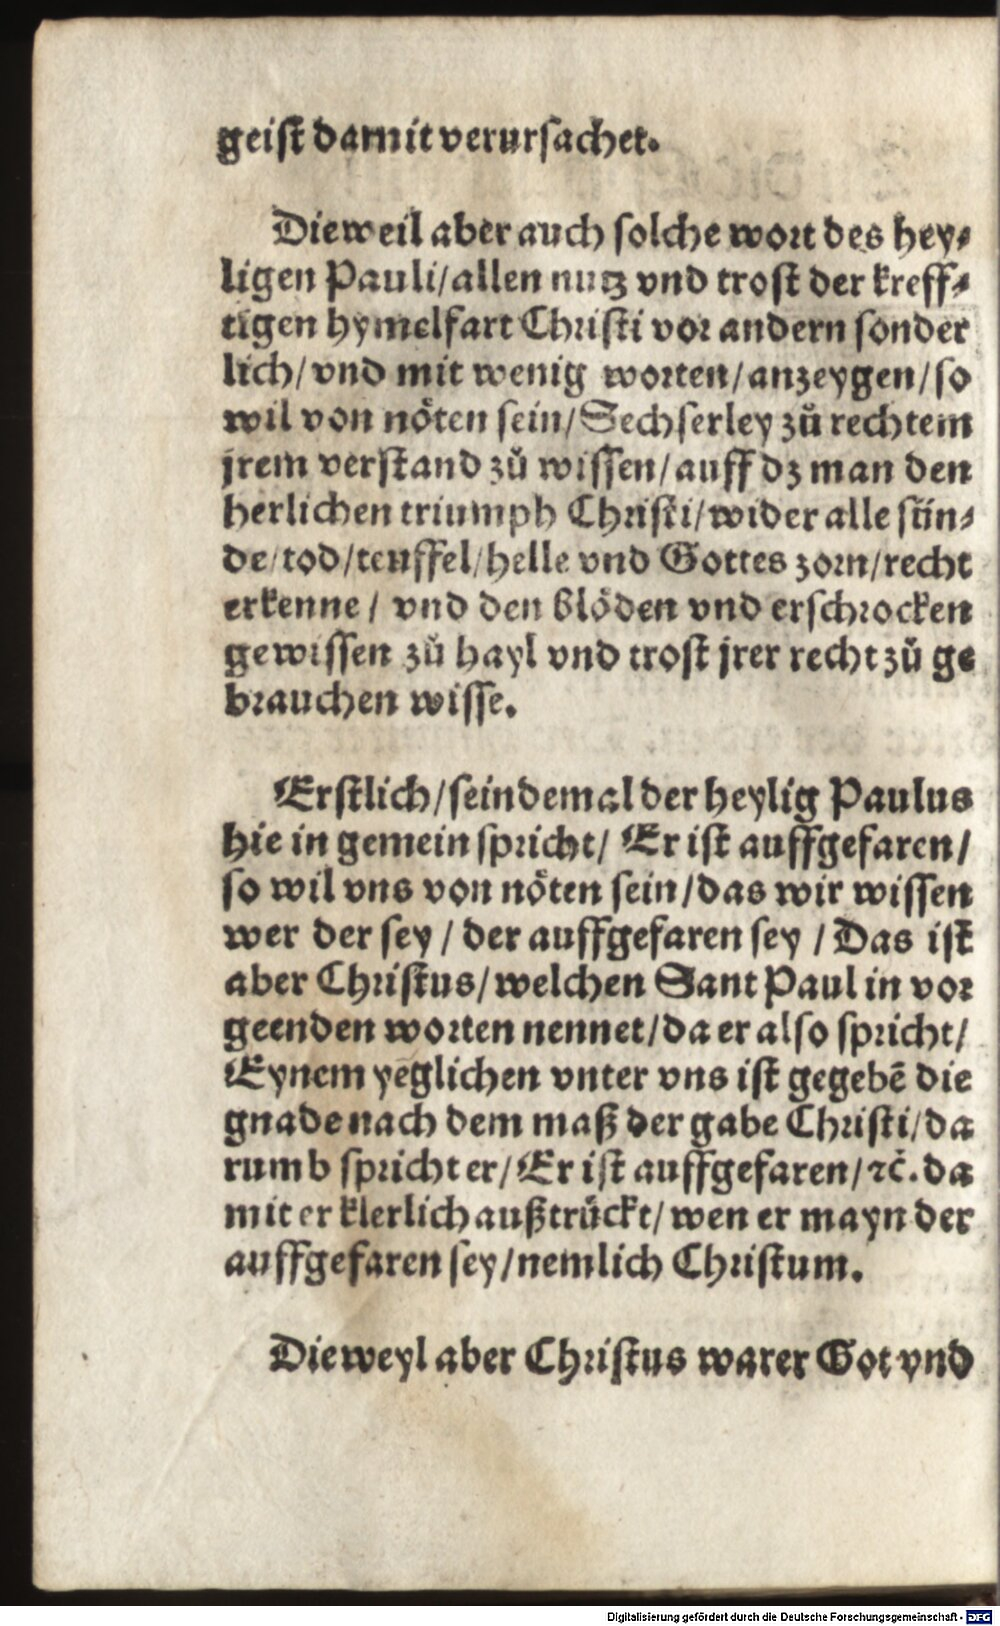 geist damit verursachet.
Dieweil aber auch solche wort des hey⸗
ligen Pauli/allen nutz vnd trost der kreff⸗
tigen hymelfart Christi vor andern sonder
lich/vnd mit wenig worten/anzeygen/so
wil von nöten sein/Sechserley zů rechtem
jrem verstand zů wissen/auff dz man den
herlichen triumph Christi/wider alle sün⸗
de/tod/teuffel/helle vnd Gottes zorn/recht
erkenne/ vnd den blöden vnd erschrocken
gewissen zů hayl vnd trost jrer recht zů ge
brauchen wisse.
Erstlich/seindemal der heylig Paulus
hie in gemein spricht/ Er ist auffgefaren/
so wil vns von nöten sein/das wir wissen
wer der sey/der auffgefaren sey/Das ist
aber Christus/welchen Sant Paul in vor
geenden worten nennet/da er also spricht/
Eynem yeglichen vnter vns ist gegebē die
gnade nach dem maß der gabe Christi/da
rumb spricht er/Er ist auffgefaren/ꝛc̄. da
mit er klerlich außtrückt/wen er mayn der
auffgefaren sey/nemlich Christum.
Dieweyl aber Christus warer Got vnd
Digitalisierung gefördert durch die Deutsche Forschungsgemeinschaft - DFG